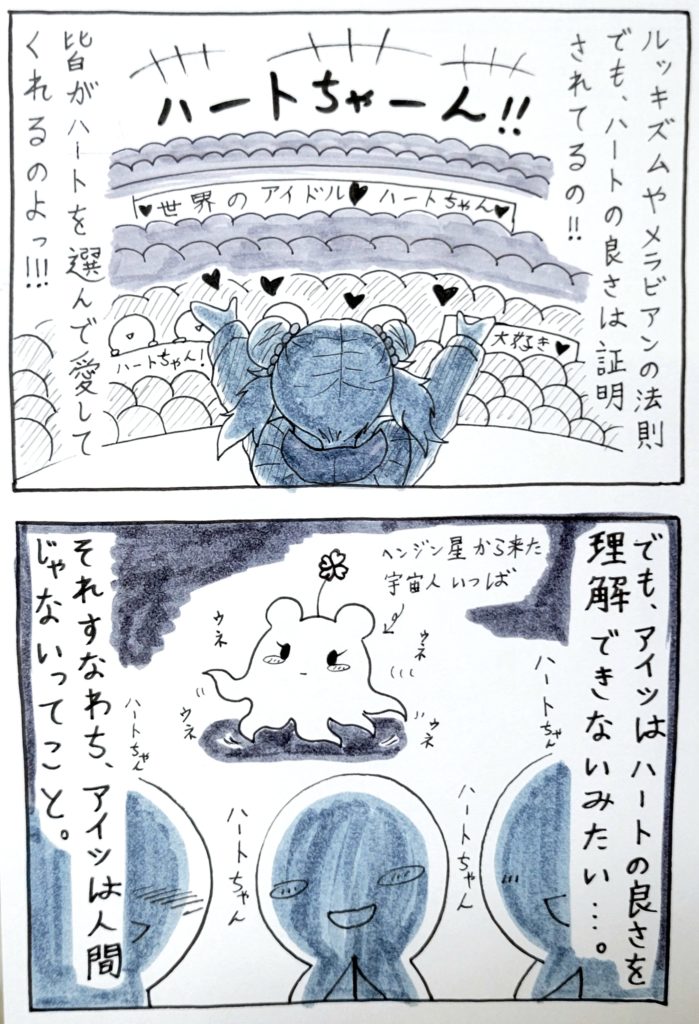 ルッキズムやメラビアンの法則
でも、ハートの良さは証明
されてるの!!
ハートちゃーん!!
♥世界のアイドル♥ハートちゃん♥
ハートちゃん!
大好き♥
皆がハートを選んで愛して
くれるのよっ!!!
でも、アイツはハートの良さを
理解できないみたい…。
ヘンジン星から来た
宇宙人いっぱ
ウネ
ウネ
ウネ
ウネ
ハートちゃん
ハートちゃん
ハートちゃん
ハートちゃん
それすなわち、アイツは人間
じゃないってこと。